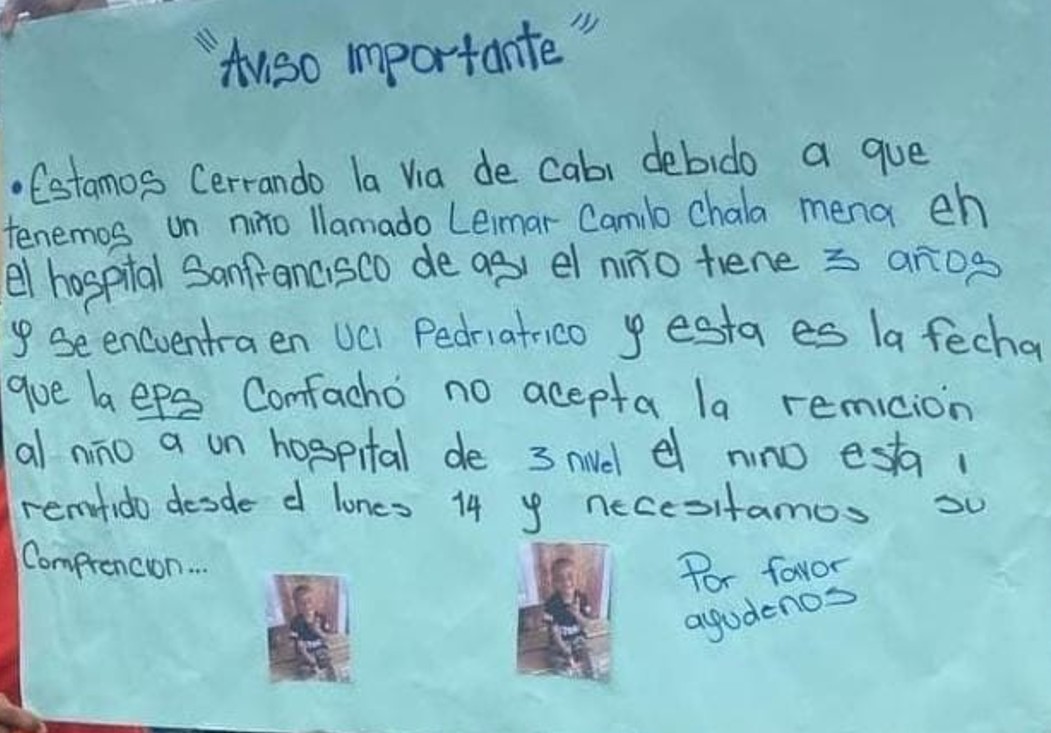 "Aviso importante"
• Estamos Cerrando la Via de Cabi debido a que
tenemos un niño llamado Leimar Camilo Chala mena en
el hospital Sanfrancisco de asi el niño tiene 3 años
y se encuentra en UCI Pedriatrico y esta es la fecha
que la eps Comfachó no acepta la remición
al niño a un hospital de 3 nivel el nino esta
remitido desde el lunes 14 y necesitamos su
Comprencion...
Por favor
ayudenos